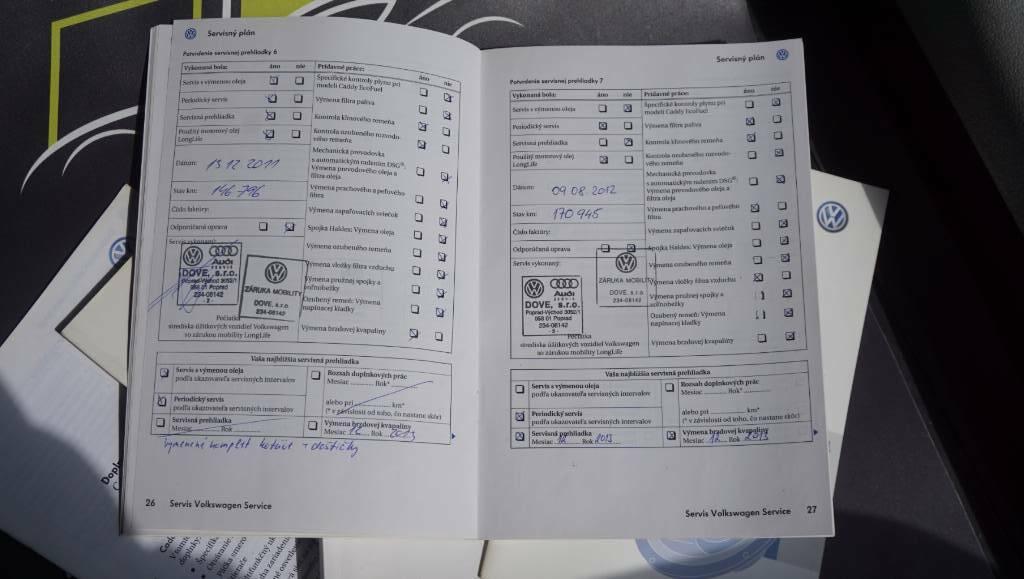 Servisný plán
Potvrdenie servisnej prehliadky 6
Vykonaná bola: áno nie
Servis s výmenou oleja
Periodický servis
Servisná prehliadka
Použitý motorový olej
LongLife
Dátum: 13.12.2011
Stav km: 146 796
Číslo faktúry:
Odporúčaná oprava
Servis vykonaný:
Audi
SERVIS
DOVE, s.r.o.
Poprad-Východ 3052/1
058 01 Poprad
234-08142
- 2 -
ZÁRUKA MOBILITY
DOVE, s.r.o.
234-08142
Pečiatka
strediska úžitkových vozidiel Volkswagen
so zárukou mobility LongLife
Prídavné práce: áno nie
Špecifické kontroly plynu pri
modeli Caddy EcoFuel
Výmena filtra paliva
Kontrola klinového remeňa
Kontrola ozubeného rozvodo-
vého remeňa
Mechanická prevodovka
s automatickým radením DSG®:
Výmena prevodového oleja a
filtra oleja
Výmena prachového a peľového
filtra
Výmena zapaľovacích sviečok
Spojka Haldex: Výmena oleja
Výmena ozubeného remeňa
Výmena vložky filtra vzduchu
Výmena pružnej spojky a
Ozubený remeň: Výmena
napínacej kladky
Výmena brzdovej kvapaliny
Vaša najbližšia servisná prehliadka
Servis s výmenou oleja
podľa ukazovateľa servisných intervalov
Periodický servis
podľa ukazovateľa servisných intervalov
Servisná prehliadka
Mesiac ........ Rok ........
Rozsah doplnkových prác
Mesiac ........ Rok*
alebo pri ........ km*
(* v závislosti od toho, čo nastane skôr)
Výmena brzdovej kvapaliny
Mesiac 12 Rok 2013
26 Servis Volkswagen Service
Servisný plán
Potvrdenie servisnej prehliadky 7
Vykonaná bola: áno nie
Servis s výmenou oleja
Periodický servis
Servisná prehliadka
Použitý motorový olej
LongLife
Dátum: 09.08.2012
Stav km: 170 945
Číslo faktúry:
Odporúčaná oprava
Servis vykonaný:
Audi
SERVIS
DOVE, s.r.o.
Poprad-Východ 3052/1
058 01 Poprad
234-08142
- 2 -
ZÁRUKA MOBILITY
DOVE, s.r.o.
234-08142
Pečiatka
strediska úžitkových vozidiel Volkswagen
so zárukou mobility LongLife
Prídavné práce: áno nie
Špecifické kontroly plynu pri
modeli Caddy EcoFuel
Výmena filtra paliva
Kontrola klinového remeňa
Kontrola ozubeného rozvodo-
vého remeňa
Mechanická prevodovka
s automatickým radením DSG®:
Výmena prevodového oleja a
filtra oleja
Výmena prachového a peľového
filtra
Výmena zapaľovacích sviečok
Spojka Haldex: Výmena oleja
Výmena ozubeného remeňa
Výmena vložky filtra vzduchu
Výmena pružnej spojky a
Ozubený remeň: Výmena
napínacej kladky
Výmena brzdovej kvapaliny
Vaša najbližšia servisná prehliadka
Servis s výmenou oleja
podľa ukazovateľa servisných intervalov
Periodický servis
podľa ukazovateľa servisných intervalov
Servisná prehliadka
Mesiac 12 Rok 2013
Rozsah doplnkových prác
Mesiac ........ Rok*
alebo pri ........ km*
(* v závislosti od toho, čo nastane skôr)
Výmena brzdovej kvapaliny
Mesiac 12 Rok 2013
Servis Volkswagen Service 27